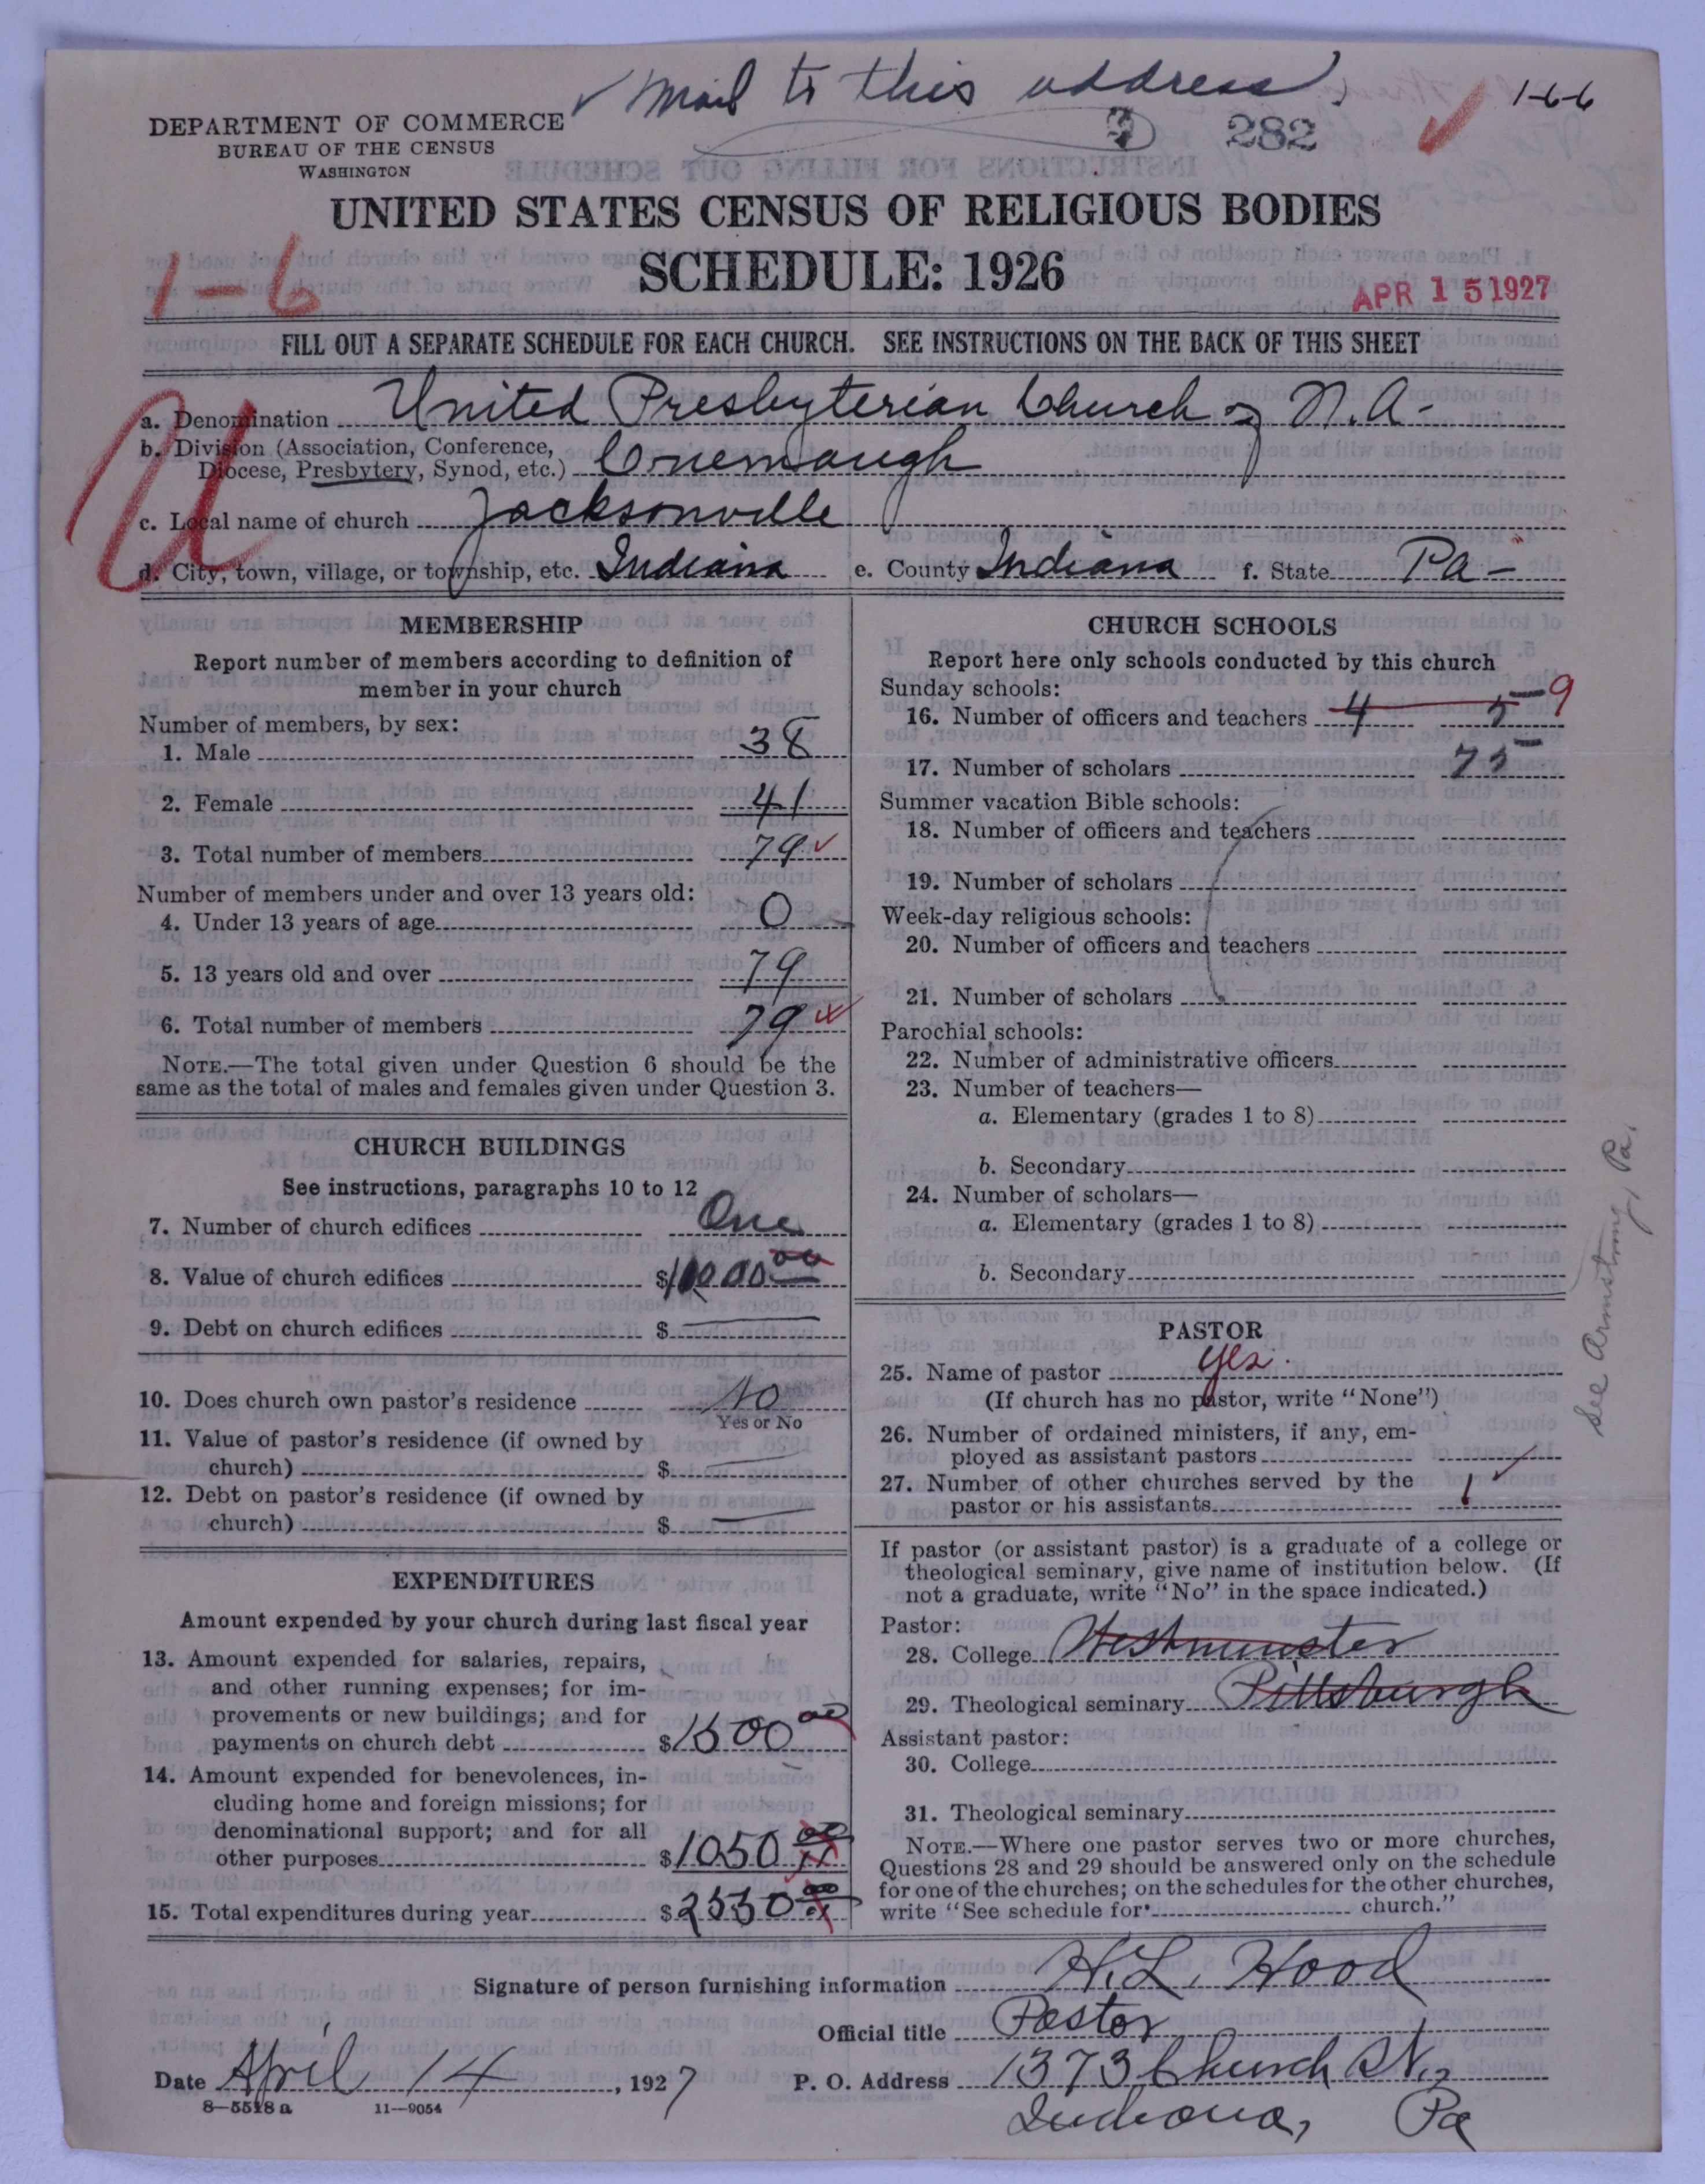 ✓ Mail to this address.
1-6-6
DEPARTMENT OF COMMERCE
BUREAU OF THE CENSUS
WASHINGTON
282
UNITED STATES CENSUS OF RELIGIOUS BODIES
SCHEDULE: 1926
1-6
APR 15 1927
FILL OUT A SEPARATE SCHEDULE FOR EACH CHURCH. SEE INSTRUCTIONS ON THE BACK OF THIS SHEET
U
a. Denomination United Presbyterian Church of N.A-
b. Division (Association, Conference,
Diocese, Presbytery, Synod, etc.) Conemaugh
c. Local name of church Jacksonville
d. City, town, village, or township, etc. Indiana e. County Indiana f. State Pa-
MEMBERSHIP
Report number of members according to definition of
member in your church
Number of members, by sex:
1. Male 38
2. Female 41
3. Total number of members 79 ✓
Number of members under and over 13 years old:
4. Under 13 years of age 0
5. 13 years old and over 79
6. Total number of members 79
NOTE.—The total given under Question 6 should be the
same as the total of males and females given under Question 3.
CHURCH BUILDINGS
See instructions, paragraphs 10 to 12
7. Number of church edifices One
8. Value of church edifices $10000 00
9. Debt on church edifices $
10. Does church own pastor's residence No
Yes or No
11. Value of pastor's residence (if owned by
church) $
12. Debt on pastor's residence (if owned by
church) $
EXPENDITURES
Amount expended by your church during last fiscal year
13. Amount expended for salaries, repairs,
and other running expenses; for im-
provements or new buildings; and for
payments on church debt $1500 00
14. Amount expended for benevolences, in-
cluding home and foreign missions; for
denominational support; and for all
other purposes $1050 00
15. Total expenditures during year $2550 00
CHURCH SCHOOLS
Report here only schools conducted by this church
Sunday schools:
16. Number of officers and teachers 4 5 9
17. Number of scholars 75
Summer vacation Bible schools:
18. Number of officers and teachers
19. Number of scholars
Week-day religious schools:
20. Number of officers and teachers
21. Number of scholars
Parochial schools:
22. Number of administrative officers
23. Number of teachers—
a. Elementary (grades 1 to 8)
b. Secondary
24. Number of scholars—
a. Elementary (grades 1 to 8)
b. Secondary
PASTOR
25. Name of pastor yes.
(If church has no pastor, write "None")
26. Number of ordained ministers, if any, em-
ployed as assistant pastors
27. Number of other churches served by the
pastor or his assistants 1 ✓
If pastor (or assistant pastor) is a graduate of a college or
theological seminary, give name of institution below. (If
not a graduate, write "No" in the space indicated.)
Pastor:
28. College Westminster
29. Theological seminary Pittsburgh
Assistant pastor:
30. College
31. Theological seminary
NOTE.—Where one pastor serves two or more churches,
Questions 28 and 29 should be answered only on the schedule
for one of the churches; on the schedules for the other churches,
write "See schedule for church."
See Armstrong, Pa.
Signature of person furnishing information H.L. Hood
Official title Pastor
Date April 14, 1927 P. O. Address 1373 Church St.,
8-5518a 11-9054
Indiana, Pa